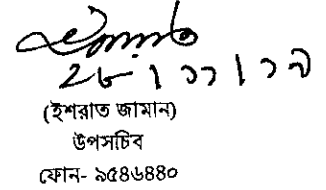 ২৮।১১।১৭
(ইশরাত জামান)
উপসচিব
ফোন- ৯৫৪৬৪৪০